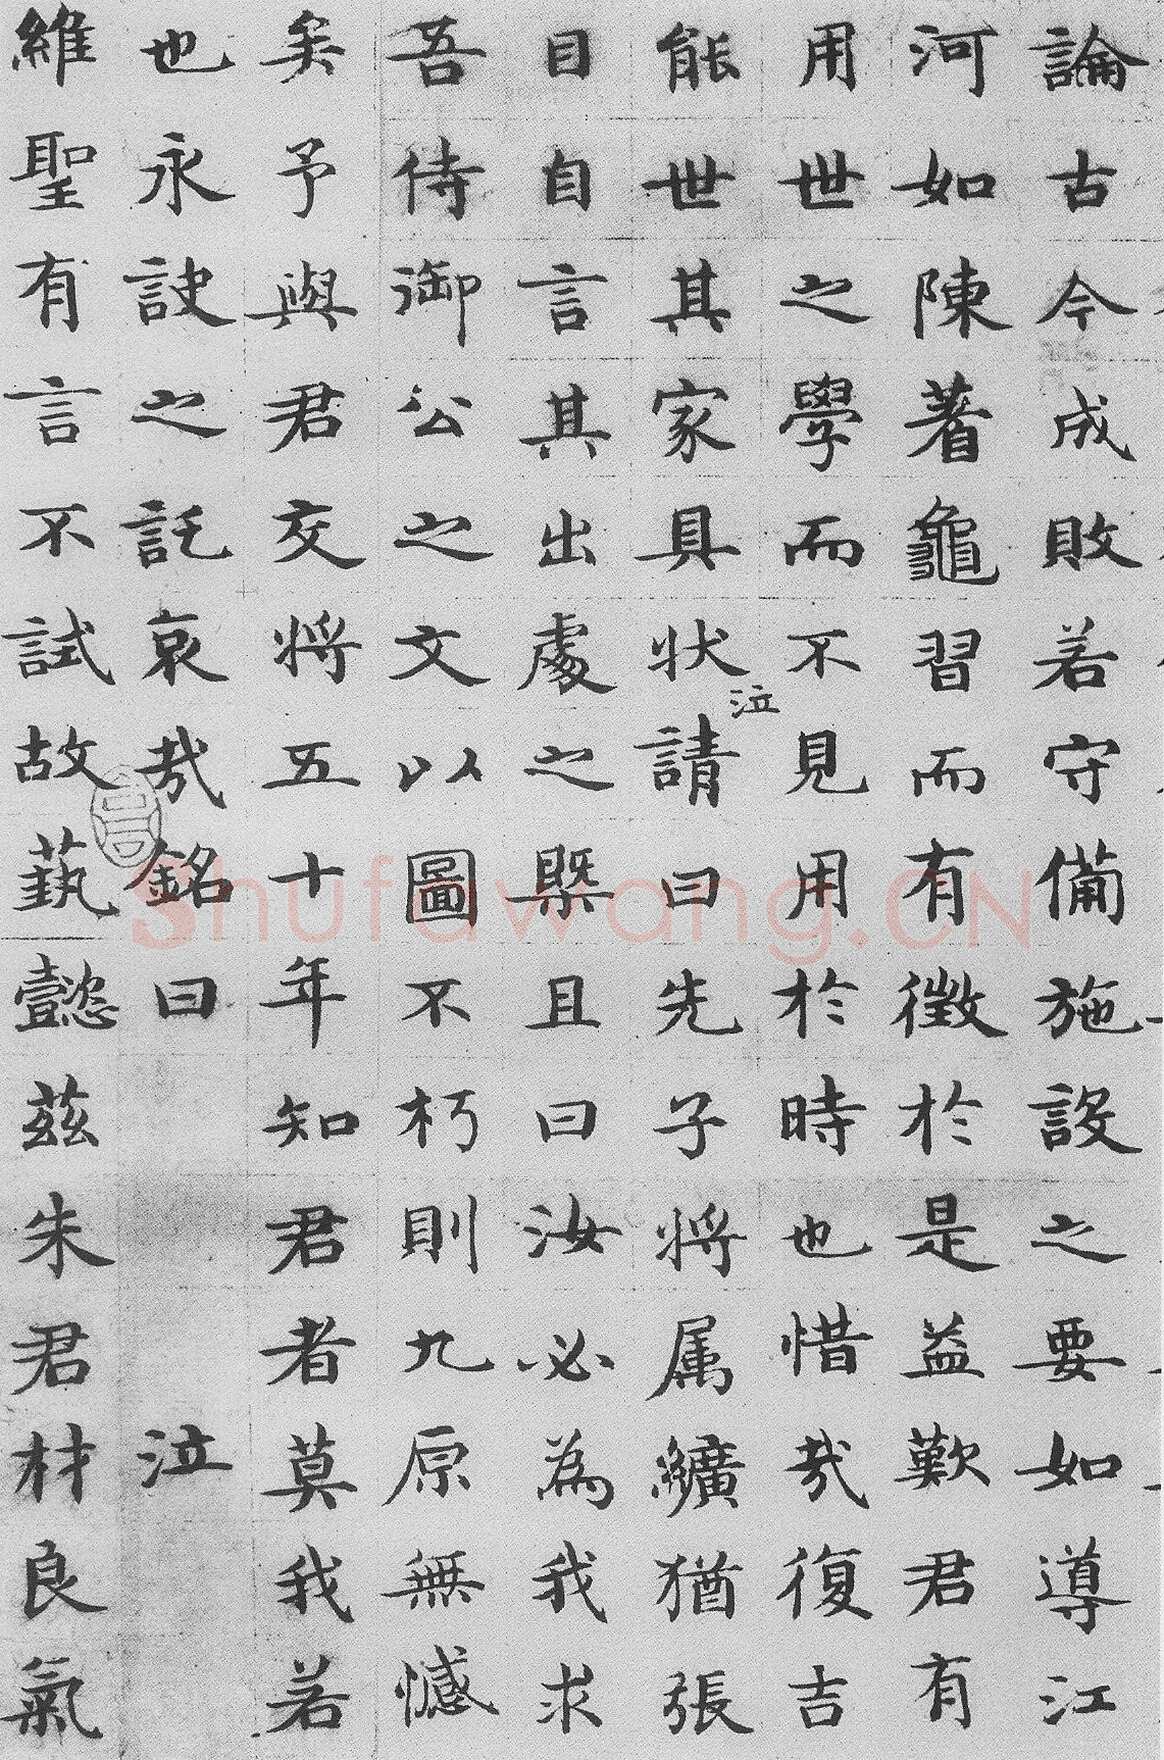 論古今成敗若守備施設之要如導江
河如陳著龜習而有徵於是益歎君有
用世之學而不見用於時也惜哉復吉
能世其家具狀泣請曰先子將属纊猶張
目自言其出處之槩且曰汝必為我求
吾侍御公之文以圖不朽則九原無憾
矣予與君交將五十年知君者莫我若
也永訣之託哀哉銘曰 泣
維聖有言不試故藝懿茲朱君材良氣
Shufawang.CN